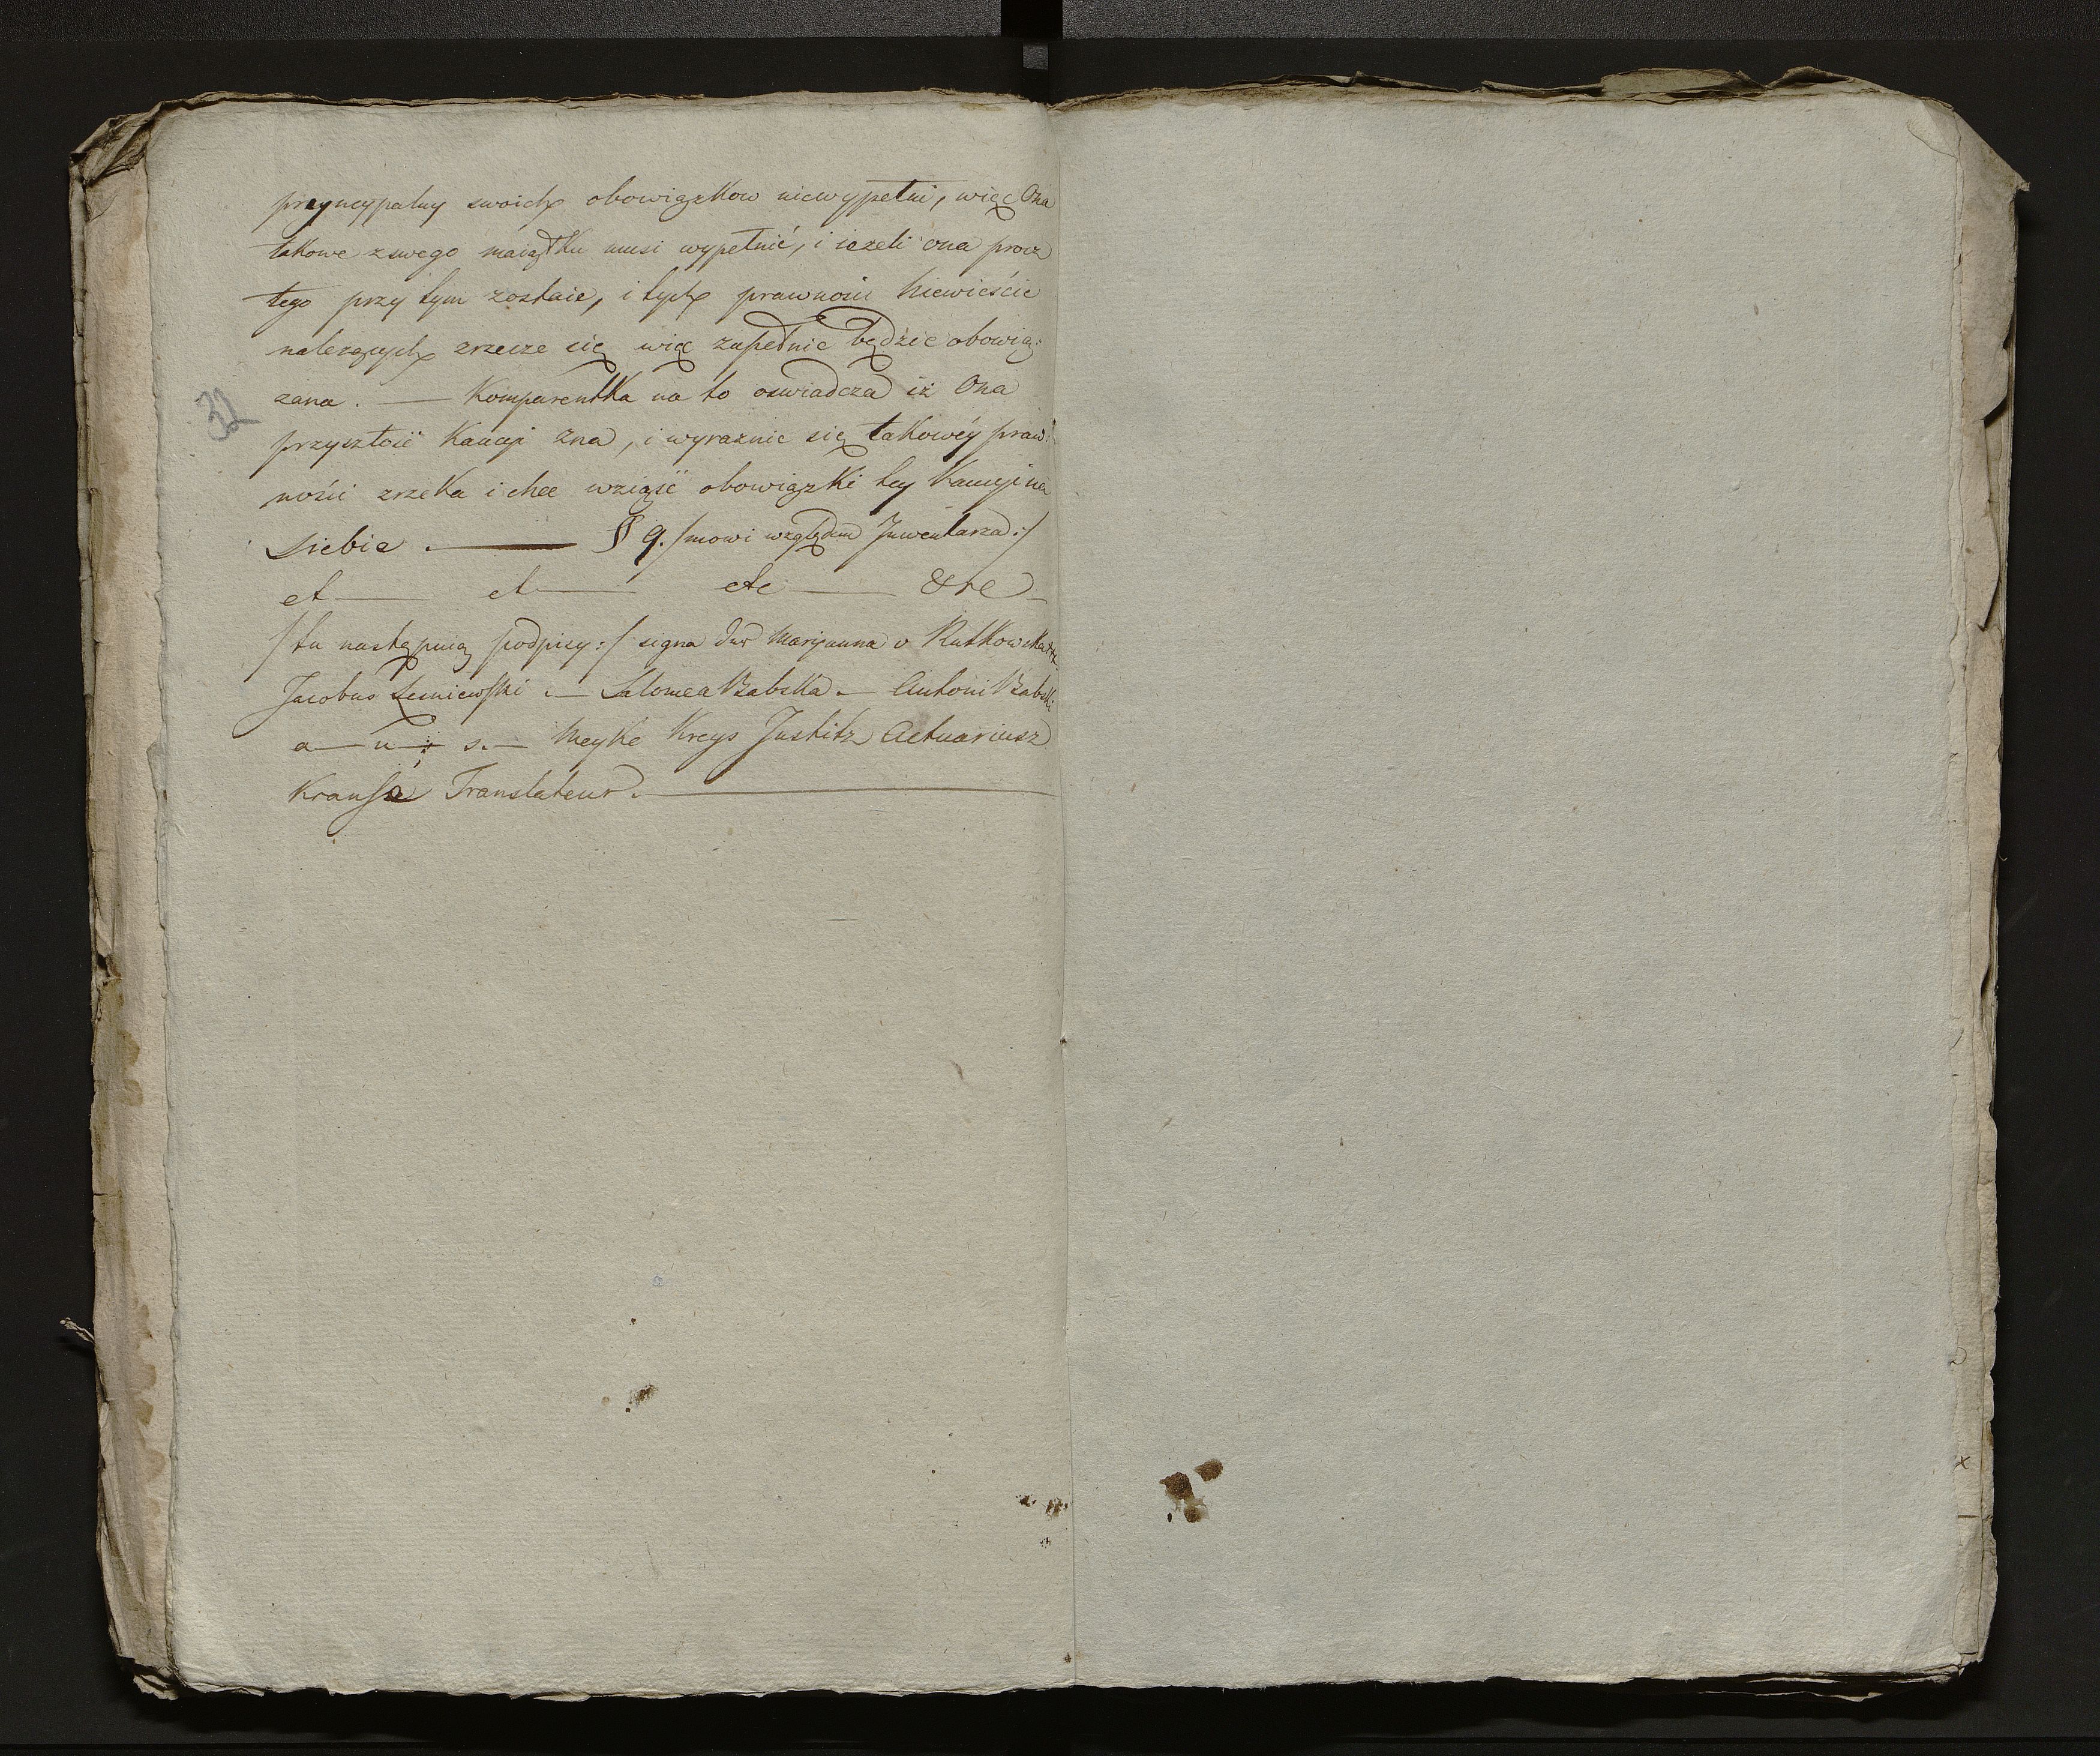 pryncypalny swoich obowiązkow niewypełni, więc Ona
takowe zswego maiątku musi wypełnić, i iezeli ona procz
tego przy tym zostaie, i tych prawnosci niewieście
nalezących zrzecze się więc zupełnie będzie obowią:
zana. — Komparentka na to oswiadcza iż Ona
przyszłość Kaucyi zna, i wyraznie się takowéy praw:
ności zrzeka i chce wziąść obowiązki tey Kaucyi na
siebie. — § 9. /mowi względem Inwentarza:/
et — et — etc — &re —
/tu następuią podpisy:/ signa dur Marijanna v Rutkowska xxx
Jacobus Lesniewski. — Salomea Babska. — Antoni Babski
a — u — s. — Meyke Kreys Justitz Actuariusz
Krause Translateur.
32